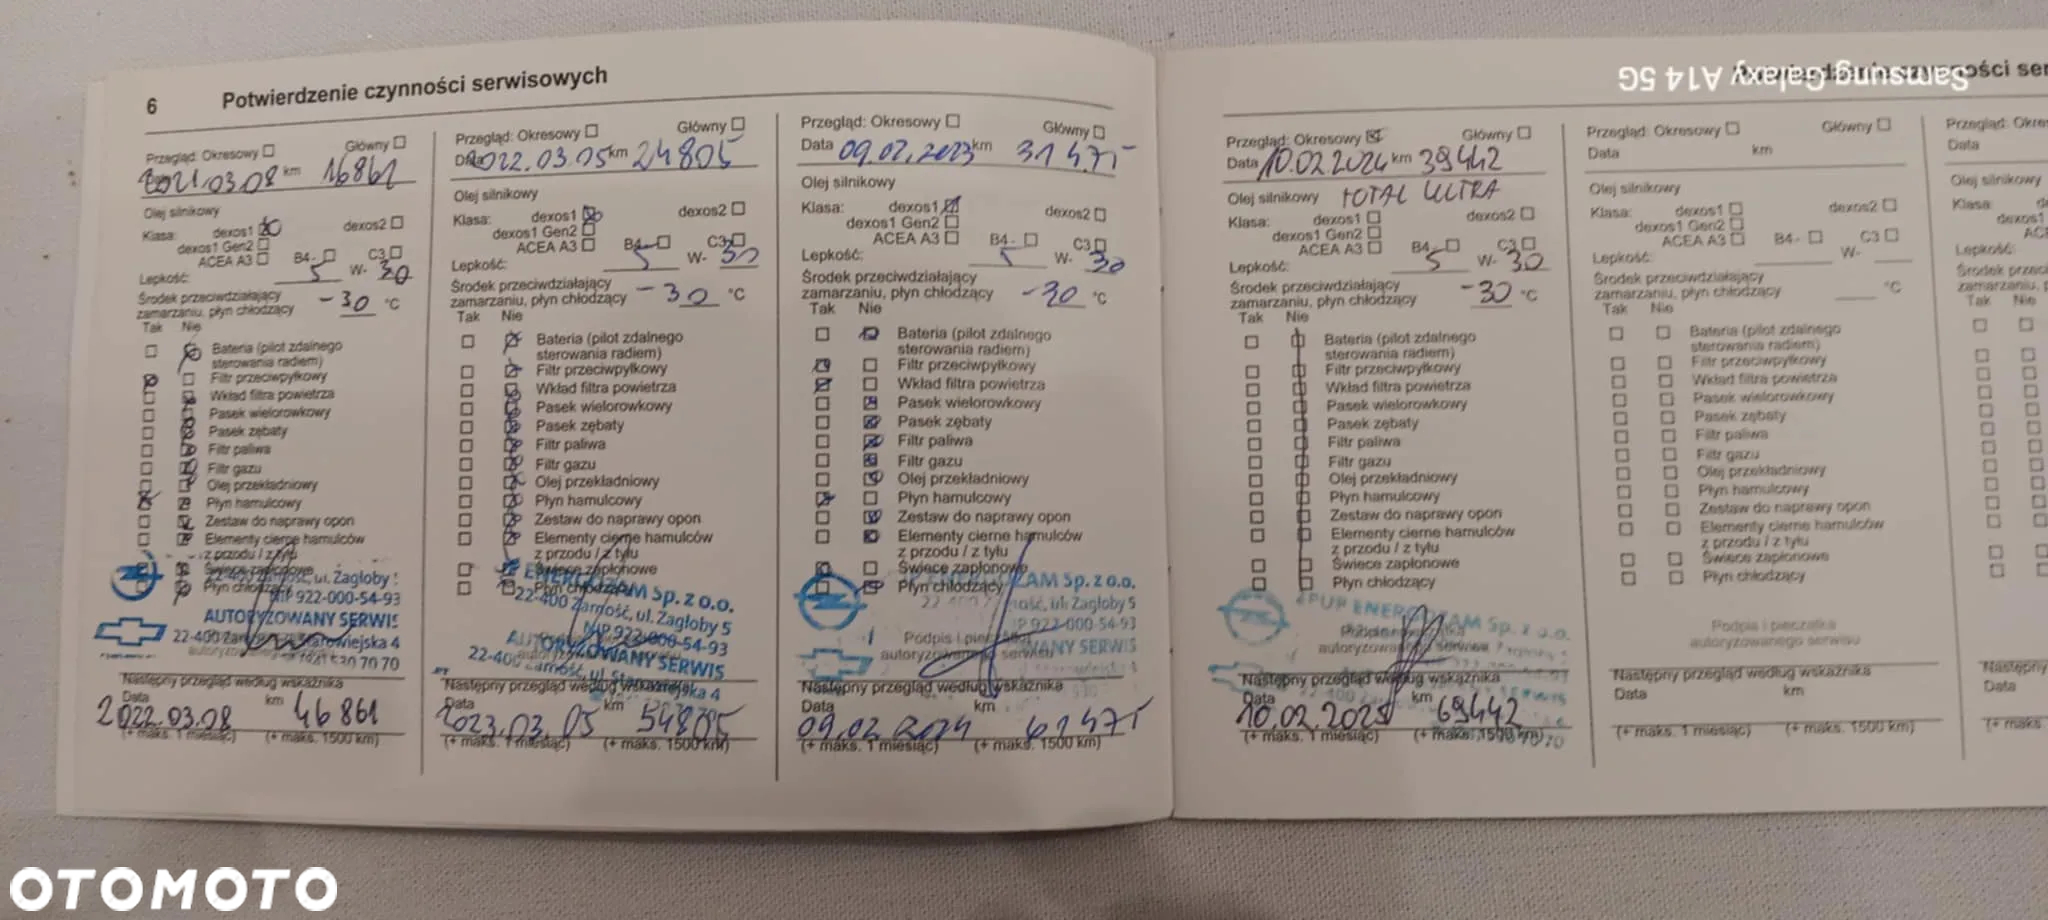 6 Potwierdzenie czynności serwisowych
Przegląd: Okresowy Główny
Data 2021.03.08 km 16861
Olej silnikowy
Klasa: dexos1 dexos2
dexos1 Gen2
ACEA A3 B4- C3
Lepkość: 5 W- 30
Środek przeciwdziałający
zamarzaniu, płyn chłodzący -30 °C
Tak Nie
Bateria (pilot zdalnego
sterowania radiem)
Filtr przeciwpyłkowy
Wkład filtra powietrza
Pasek wielorowkowy
Pasek zębaty
Filtr paliwa
Filtr gazu
Olej przekładniowy
Płyn hamulcowy
Zestaw do naprawy opon
Elementy cierne hamulców
z przodu / z tyłu
Świece zapłonowe
Płyn chłodzący
22-400 Zamość, ul. Zagłoby 5
NIP 922-000-54-93
AUTORYZOWANY SERWIS
22-400 Zamość, ul. Starowiejska 4
Następny przegląd według wskaźnika
Data km
2022.03.08 46861
(+ maks. 1 miesiąc) (+ maks. 1500 km)
Przegląd: Okresowy Główny
Data 2022.03.05 km 24805
Olej silnikowy
Klasa: dexos1 dexos2
dexos1 Gen2
ACEA A3 B4- C3
Lepkość: 5 W- 30
Środek przeciwdziałający
zamarzaniu, płyn chłodzący -30 °C
Tak Nie
Bateria (pilot zdalnego
sterowania radiem)
Filtr przeciwpyłkowy
Wkład filtra powietrza
Pasek wielorowkowy
Pasek zębaty
Filtr paliwa
Filtr gazu
Olej przekładniowy
Płyn hamulcowy
Zestaw do naprawy opon
Elementy cierne hamulców
z przodu / z tyłu
Świece zapłonowe
Płyn chłodzący
ENERGOZAM Sp. z o.o.
22-400 Zamość, ul. Zagłoby 5
NIP 922-000-54-93
AUTORYZOWANY SERWIS
22-400 Zamość, ul. Starowiejska 4
Następny przegląd według wskaźnika
Data km
2023.03.05 54805
(+ maks. 1 miesiąc) (+ maks. 1500 km)
Przegląd: Okresowy Główny
Data 09.02.2023 km 31475
Olej silnikowy
Klasa: dexos1 dexos2
dexos1 Gen2
ACEA A3 B4- C3
Lepkość: 5 W- 30
Środek przeciwdziałający
zamarzaniu, płyn chłodzący -30 °C
Tak Nie
Bateria (pilot zdalnego
sterowania radiem)
Filtr przeciwpyłkowy
Wkład filtra powietrza
Pasek wielorowkowy
Pasek zębaty
Filtr paliwa
Filtr gazu
Olej przekładniowy
Płyn hamulcowy
Zestaw do naprawy opon
Elementy cierne hamulców
z przodu / z tyłu
Świece zapłonowe
Płyn chłodzący
ENERGOZAM Sp. z o.o.
22-400 ul. Zagłoby 5
NIP 922-000-54-93
Podpis i pieczątka
autoryzowanego serwisu
SERWIS
Następny przegląd według wskaźnika
Data km
09.02.2024 61475
(+ maks. 1 miesiąc) (+ maks. 1500 km)
Samsung Galaxy A14 5G
Przegląd: Okresowy Główny
Data 10.02.2024 km 39442
Olej silnikowy TOTAL ULTRA
Klasa: dexos1 dexos2
dexos1 Gen2
ACEA A3 B4- C3
Lepkość: 5 W- 30
Środek przeciwdziałający
zamarzaniu, płyn chłodzący -30 °C
Tak Nie
Bateria (pilot zdalnego
sterowania radiem)
Filtr przeciwpyłkowy
Wkład filtra powietrza
Pasek wielorowkowy
Pasek zębaty
Filtr paliwa
Filtr gazu
Olej przekładniowy
Płyn hamulcowy
Zestaw do naprawy opon
Elementy cierne hamulców
z przodu / z tyłu
Świece zapłonowe
Płyn chłodzący
PUP ENERGOZAM Sp. z o.o.
autoryzowanego serwisu
Następny przegląd według wskaźnika
Data km
10.02.2025 69442
(+ maks. 1 miesiąc) (+ maks. 1500 km)
Przegląd: Okresowy Główny
Data km
Olej silnikowy
Klasa: dexos1 dexos2
dexos1 Gen2
ACEA A3 B4- C3
Lepkość: W-
Środek przeciwdziałający
zamarzaniu, płyn chłodzący °C
Tak Nie
Bateria (pilot zdalnego
sterowania radiem)
Filtr przeciwpyłkowy
Wkład filtra powietrza
Pasek wielorowkowy
Pasek zębaty
Filtr paliwa
Filtr gazu
Olej przekładniowy
Płyn hamulcowy
Zestaw do naprawy opon
Elementy cierne hamulców
z przodu / z tyłu
Świece zapłonowe
Płyn chłodzący
Podpis i pieczątka
autoryzowanego serwisu
Następny przegląd według wskaźnika
Data km
(+ maks. 1 miesiąc) (+ maks. 1500 km)
Data
Olej silnikowy
Tak Nie
Data
OTOMOTO